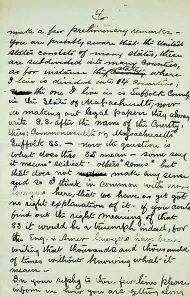 4
make a few preliminary remarks -
you are probably aware that the United
States consists of many States, these
are subdivided into many Counties,
as for instance the where
I live is divided into 14 Counties,
the one I live in is Suffolk County
in the State of Massachusetts, now
in making out legal papers they always
write S.S. after the name of the County
thus: Commonwealth of Massachusetts
Suffolk SS. - now the question is
what does this SS mean - some say
it means "scilicet" others "sems" but
that does not make any sense
and so I think in common with many
lawyers here that we have as yet got
no right explanation of it - if you could
find out the right meaning of that
SS it would be a triumph indeed, for
the have been
writing that thousands and thousands
of times without knowing what it
means -
In your reply to this few lines please
inform me how you are getting along